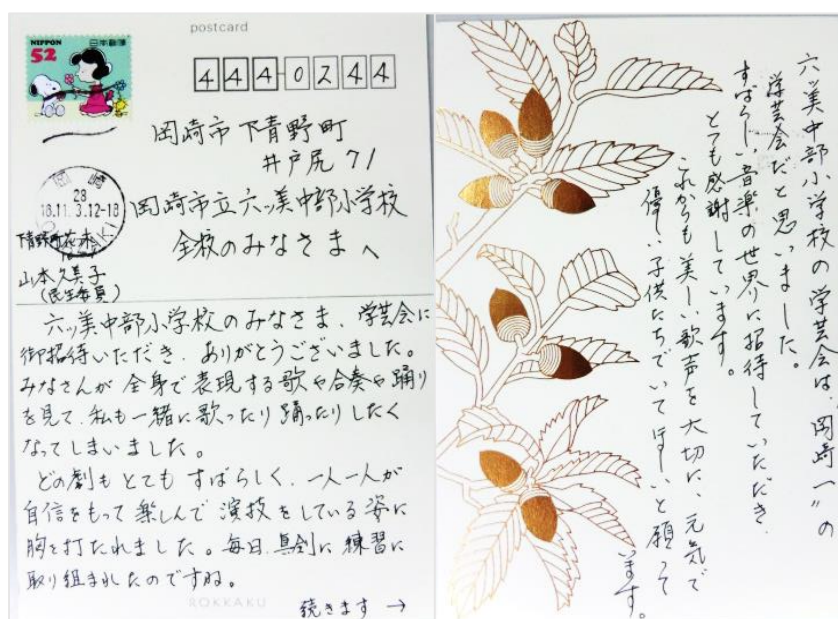 postcard
NIPPON
日本郵便
52
444-0244
岡崎市下青野町
井戸尻71
岡崎市立六ッ美中部小学校
全校のみなさまへ
岡崎
28
18.11.3.12-18
OKAZAKI
下青野町花木
山本久美子
(民生委員)
六ッ美中部小学校のみなさま、学芸会に
御招待いただき、ありがとうございました。
みなさんが全身で表現する歌や合奏や踊り
を見て、私も一緒に歌ったり踊ったりしたく
なってしまいました。
どの劇もとてもすばらしく、一人一人が
自信をもって楽しんで演技をしている姿に
胸を打たれました。毎日、真剣に練習に
取り組まれたのですね。
ROKKAKU
続きます →
六ッ美中部小学校の学芸会は、岡崎一〃の
学芸会だと思いました。
すばらしい音楽の世界に招待していただき、
とても感謝しています。
これからも美しい歌声を大切に、元気で
優しい子供たちでいてほしいと願って
います。